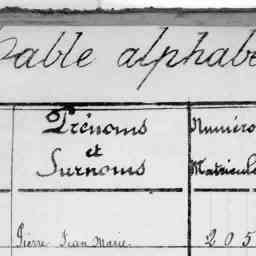 Table alphabé
Prénoms
et
Surnoms
Numéro
Matricule
Pierre Jean Marie
205